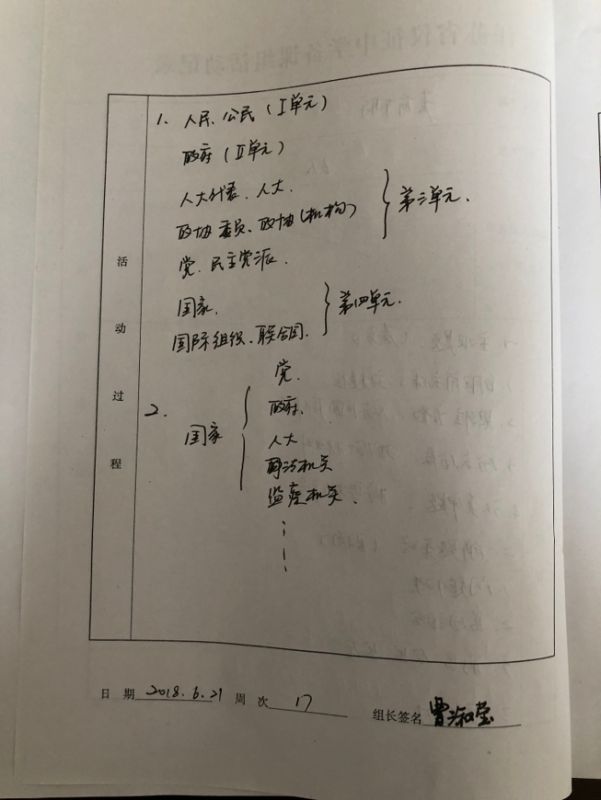 1. 人民、公民（Ⅰ单元）
政府（Ⅱ单元）
人大代表、人大、
政协委员、政协（机构） } 第三单元.
党、民主党派.
国家.
国际组织、联合国. } 第四单元.
2. 国家 {
党.
政府.
人大
司法机关
监察机关.
活动过程
日 期 2018.6.21 周 次 17 组长签名 曾淑莹